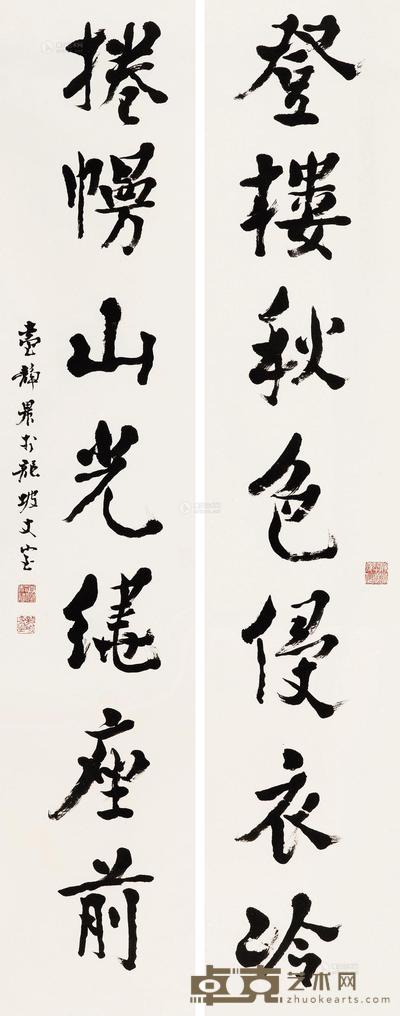 登樓秋色侵衣冷
捲幔山光繞座前
臺靜農於龍坡丈室
卓克艺术网
zhuokearts.com